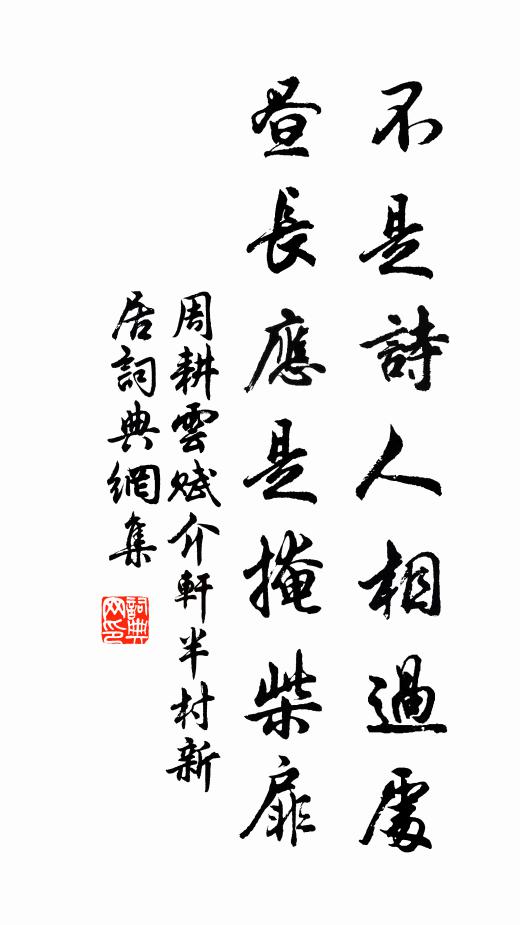 不是詩人相過處
晝長應是掩柴扉
周耕雲賦介軒半村新
居詞典網集
詞典网印